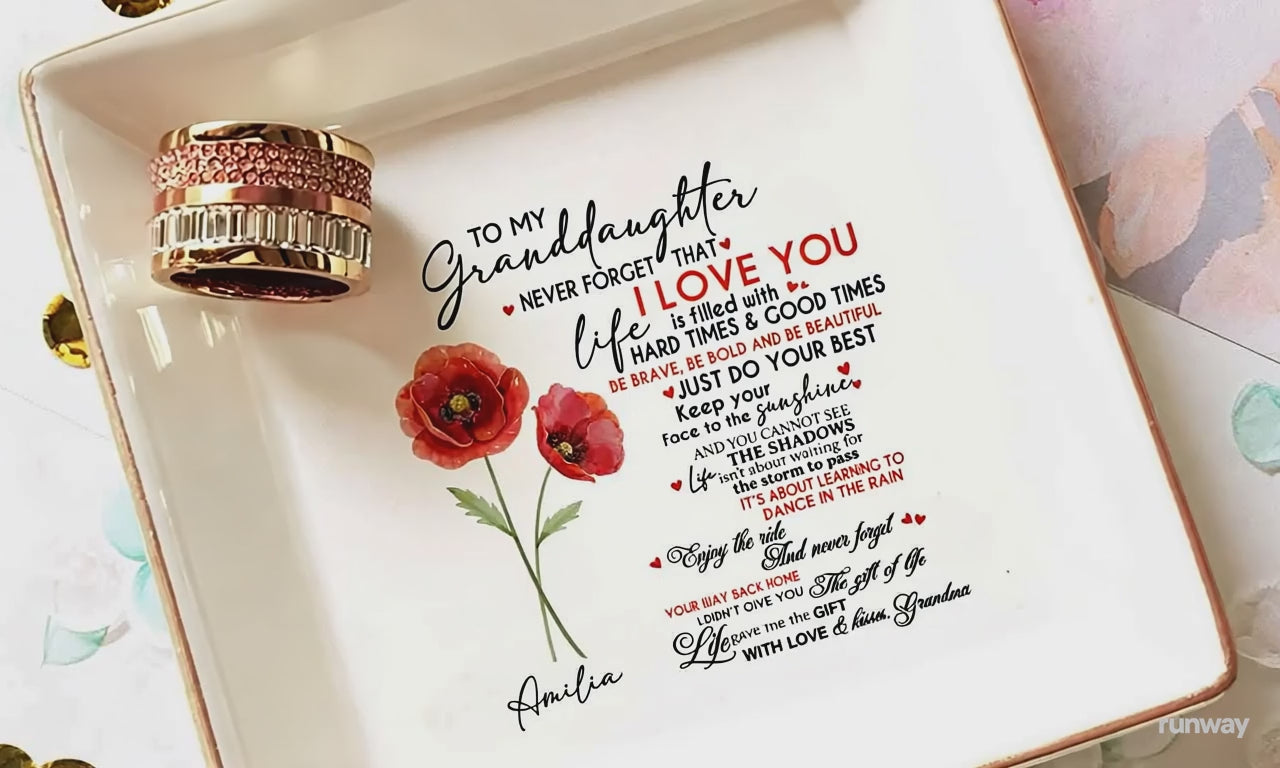 TO MY
Granddaughter
NEVER FORGET THAT
I LOVE YOU
life is filled with
HARD TIMES & GOOD TIMES
BE BRAVE, BE BOLD AND BE BEAUTIFUL
JUST DO YOUR BEST
Keep your
Face to the sunshine
AND YOU CANNOT SEE
THE SHADOWS
Life isn't about waiting for
the storm to pass
IT'S ABOUT LEARNING TO
DANCE IN THE RAIN
Enjoy the ride
And never forget
YOUR WAY BACK HOME
I DIDN'T OIVE YOU The gift of life
Life RAVE me the GIFT
WITH LOVE & kisses, Grandma
Amilia
runway